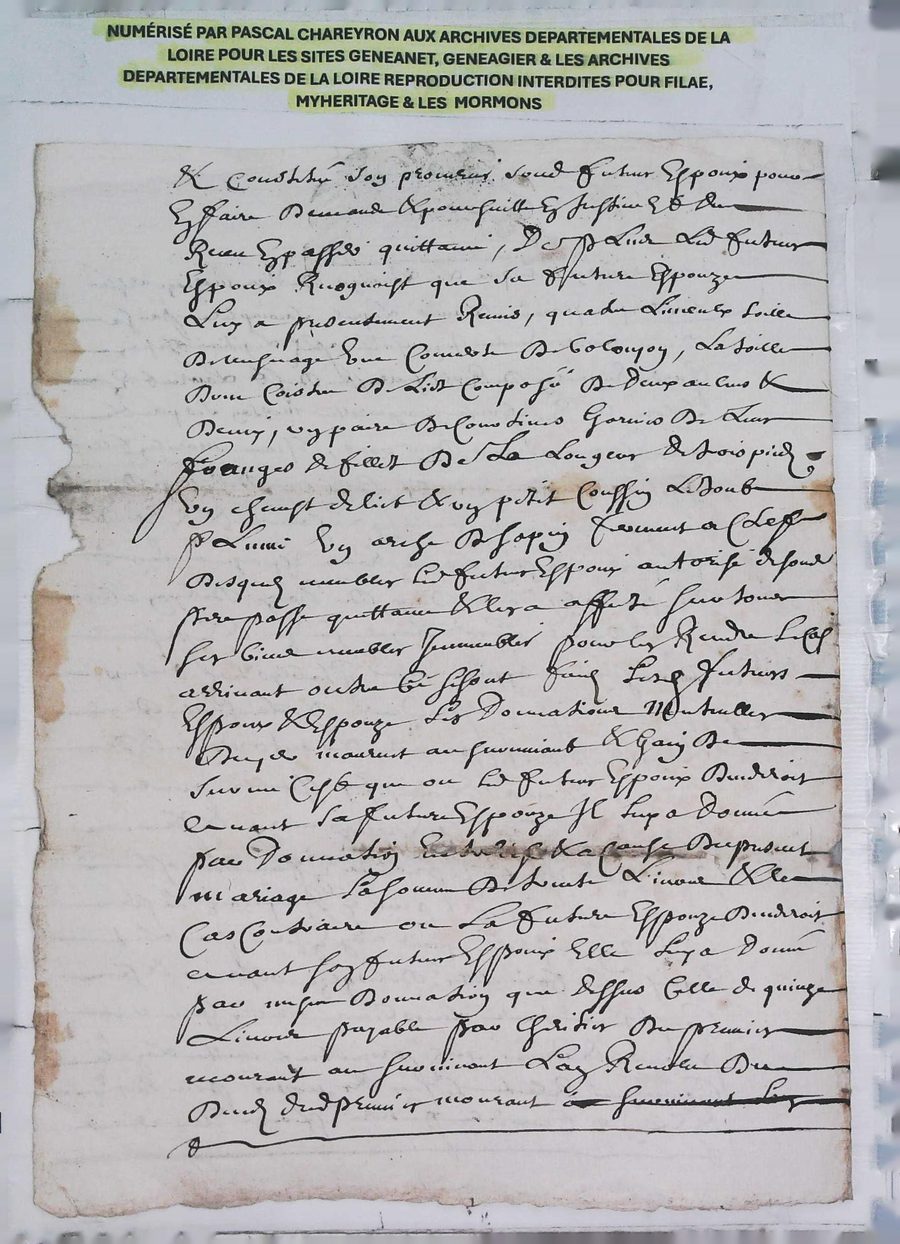 NUMÉRISÉ PAR PASCAL CHAREYRON AUX ARCHIVES DEPARTEMENTALES DE LA
LOIRE POUR LES SITES GENEANET, GENEAGIER & LES ARCHIVES
DEPARTEMENTALES DE LA LOIRE REPRODUCTION INTERDITES POUR FILAE,
MYHERITAGE & LES MORMONS
& constitué son procureur sond futur Espoux pour
En faire demande & poursuitte En Justice & du
Receu En passer quittance, De plus Led futur
Espoux Recognoist que sa future Espouze
Luy a presentement Remis, quatre Linceulx toille
de mesnage Une Couverte De, La toille
Dune Coistre De Lict Composé De deux aulnes &
Demy, un paire De Courtines Garnies De Leurs
franges de fillet De La Longeur de trois pieds
un chevest de lict & un petit Coussin Le tout
plume Un arche De sapin fermant a Cleff
Desquels meubles led futur Espoux autorisé desond
pere passe quittance & les a affecté sur tous
ses biens meubles Immeubles pour les Rendre Le cas
arrivant outre ce se sont faict Lesd futurs
Espoux & Espouze Les Donnations Mutuelles
Du pr mourant au survivant & Gain De
survie Cest que ou led futur Espoux Decederoit
avant sa future Espouze Il Luy a Donné
par Donnation & a cause Du present
mariage La somme De trente Livres & le
Cas Contraire ou La future Espouze Decederoit
avant son futur Espoux Elle Luy a Donné
par mesme Donnation que dessus Celle de quinze
Livres payable par l'heritier Du premier
mourant au survivant L'an Revolu Du
Deced dud premier mourant